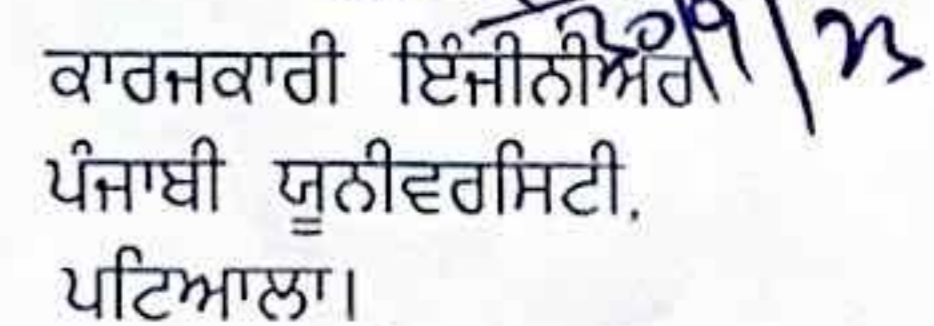 ਕਾਰਜਕਾਰੀ ਇੰਜੀਨੀਅਰ
ਪੰਜਾਬੀ ਯੂਨੀਵਰਸਿਟੀ.
ਪਟਿਆਲਾ।